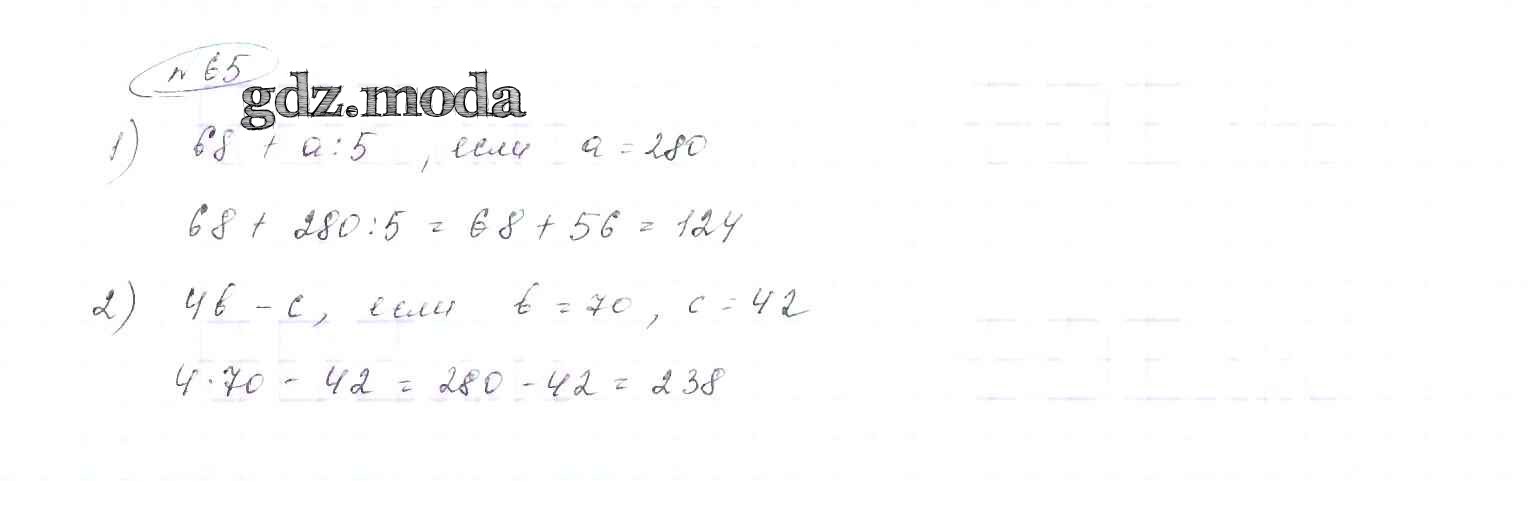 № 65
gdz.moda
1) 68 + a : 5 , если a = 280
68 + 280 : 5 = 68 + 56 = 124
2) 4b - c, если b = 70, c = 42
4 · 70 - 42 = 280 - 42 = 238